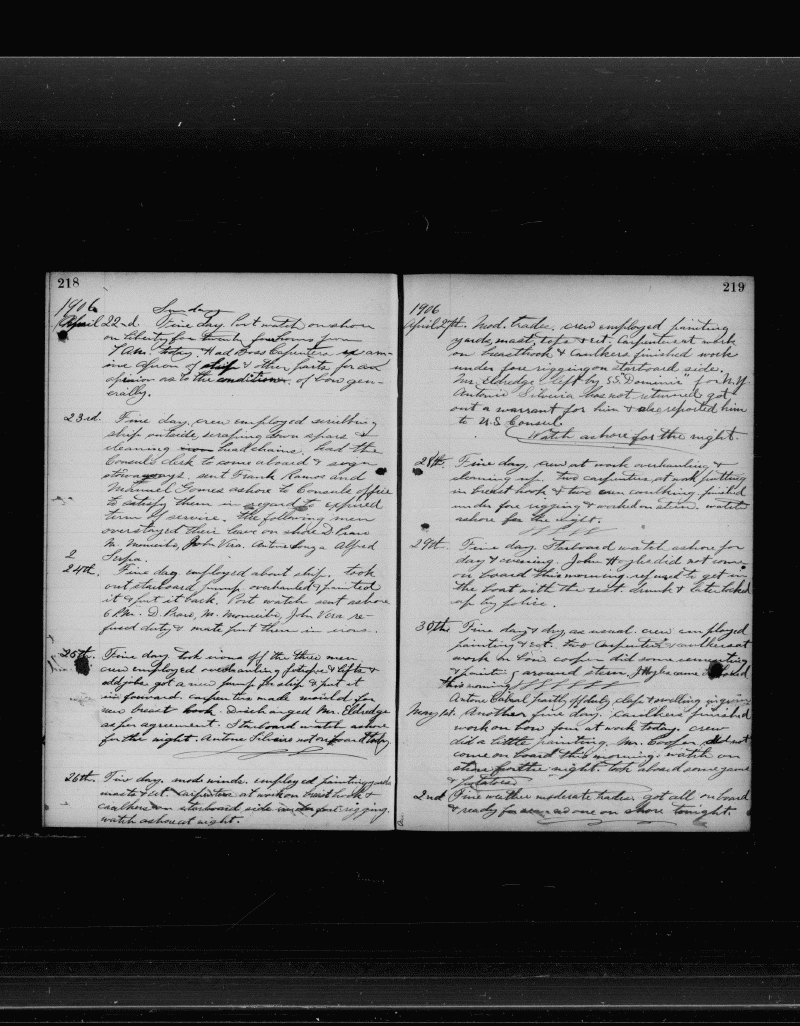 218
1906 Sunday
April 22nd. Fine day. Port watch on shore
on liberty for twenty four hours from
7 AM. today. Had Boss Carpenters exam-
ine apron of ship & other parts for an
opinion as to the conditions of bow gen-
erally.
23rd. Fine day, crew employed scrubbing
ship outside, scraping down spars &
cleaning chains, had the
Consuls clerk to come aboard & sign
sent Frank Ramos and
Manuel Gomes ashore to Consuls office
to satisfy them in regard to expired
term of service. The following men
overstayed their leave on shore D. Pravo
M. Momento, John Vera. Antone Alfred
2 Serpa.
24th. Fine day employed about ship. took
out starboard pump overhauled & painted
it & put it back. Port watch sent ashore
6 PM. D. Pravo, M. Momento, John Vera re-
fused duty & mate put them in irons.
25th. Fine day took irons off the three men
crew employed overhauling foretopse & lifts &
odd jobs got a new pump for ship & put it
in forward. carpenters made mould for
new breast hook. Discharged Mr. Eldredge
as per agreement. Starboard watch ashore
for the night. Antone Silveira not on board today.
26th. Fine day. mode winds. employed painting yards
masts & ect. Carpenters at work on breast hook &
caulkers on starboard side under fore rigging.
watch ashore at night.
219
1906
April 27th. Mod. trades. crew employed painting
yards, mast, tops & ect. Carpenters at work
on breasthook & caulkers finished work
under fore rigging on starboard side.
Mr. Eldredge left by SS. "Dominie" for N.Y.
Antonio Silveira has not returned got
out a warrant for him & also reported him
to U.S. Consul.
Watch ashore for the night.
28th. Fine day, crew at work overhauling &
cleaning up. two carpenters at work putting
in breast hook & two caulking. finished
under fore rigging & worked on stem. watch
ashore for the night.
29th. Fine day. Starboard watch ashore for
day & evening. John Hoyle did not come
on board this morning refused to get in
the boat with the rest. drunk & later locked
up by police.
30th. Fine day & dry as usual. crew employed
painting & ect. two carpenters & caulkers at
work on bow cooper did some cementing
& painting around stern. J. Hoyle came aboard
this morning
Antone Cabral partly off duty, clap & swelling in groin
May 1st. Another fine day. Caulkers finished
work on bow four at work today. crew
did a little painting. Mr. Cooper did not
come on board this morning. watch on
shore for the night. took aboard some yams
& Potatoes
2nd Fine weather moderate trades got all on board
& ready for sea no one on shore tonight.